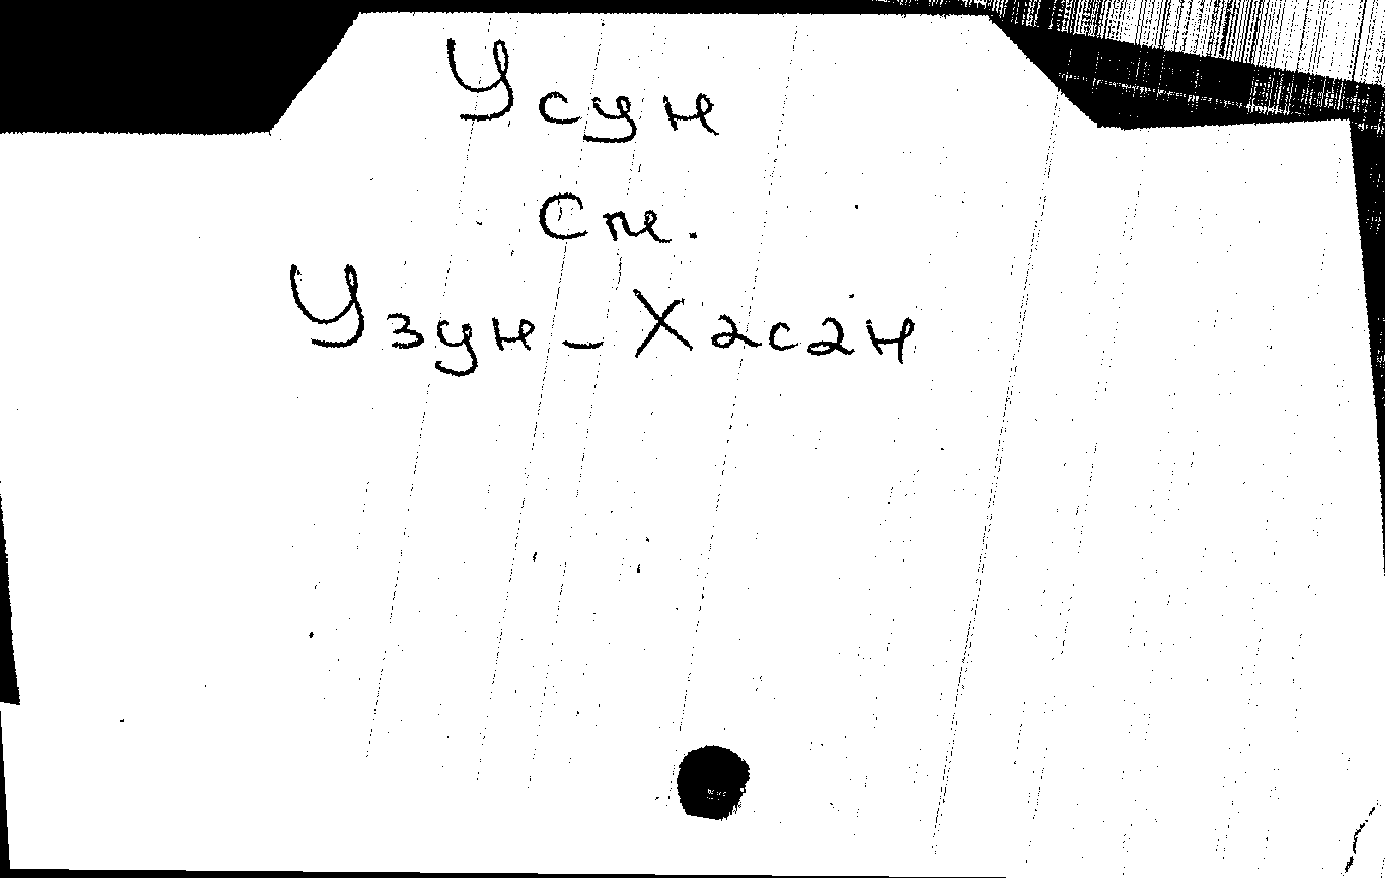 Усун
См.
Узун-Хасан